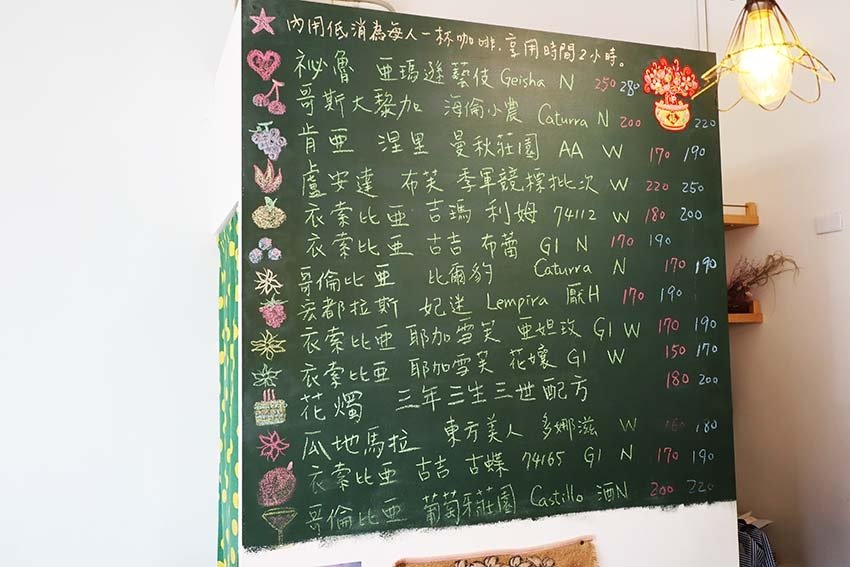 內用低消為每人一杯咖啡，享用時間2小時。
祕魯 亞瑪遜藝伎 Geisha N 250 280
哥斯大黎加 海倫小農 Caturra N 200 220
肯亞 涅里 曼秋莊園 AA W 170 190
盧安達 布芙 季軍競標批次 W 220 250
衣索比亞 吉瑪 利姆 74112 W 180 200
衣索比亞 古吉 布蕾 G1 N 170 190
哥倫比亞 比爾豹 Caturra N 170 190
宏都拉斯 妃迷 Lempira 厭H 170 190
衣索比亞 耶加雪芙 亞妲玫 G1 W 170 190
衣索比亞 耶加雪芙 花孃 G1 W 150 170
花燭 三年三生三世配方 180 200
瓜地馬拉 東方美人 多娜滋 W 160 180
衣索比亞 古吉 古蝶 74165 G1 N 170 190
哥倫比亞 葡萄牙莊園 Castillo 酒N 200 220